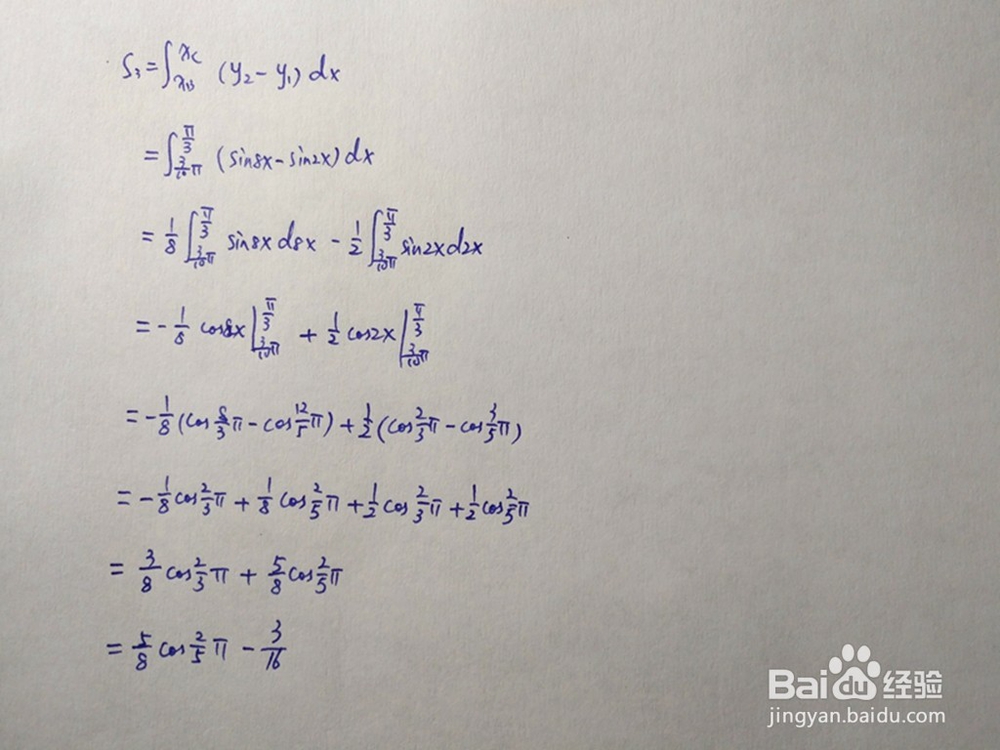 S₃=∫_{x_B}^{x_C} (y₂-y₁)dx
=∫_{3/10 π}^{π/3} (sin8x-sin2x)dx
=1/8∫_{3/10 π}^{π/3} sin8x d8x - 1/2∫_{3/10 π}^{π/3} sin2x d2x
=-1/8 cos8x|_{3/10 π}^{π/3} + 1/2 cos2x|_{3/10 π}^{π/3}
=-1/8(cos8/3π-cos12/5π)+1/2(cos2/3π-cos3/5π)
=-1/8cos2/3π+1/8cos2/5π+1/2cos2/3π+1/2cos2/5π
=3/8cos2/3π+5/8cos2/5π
=5/8cos2/5π-3/16
Baidu经验
jingyan.baidu.com